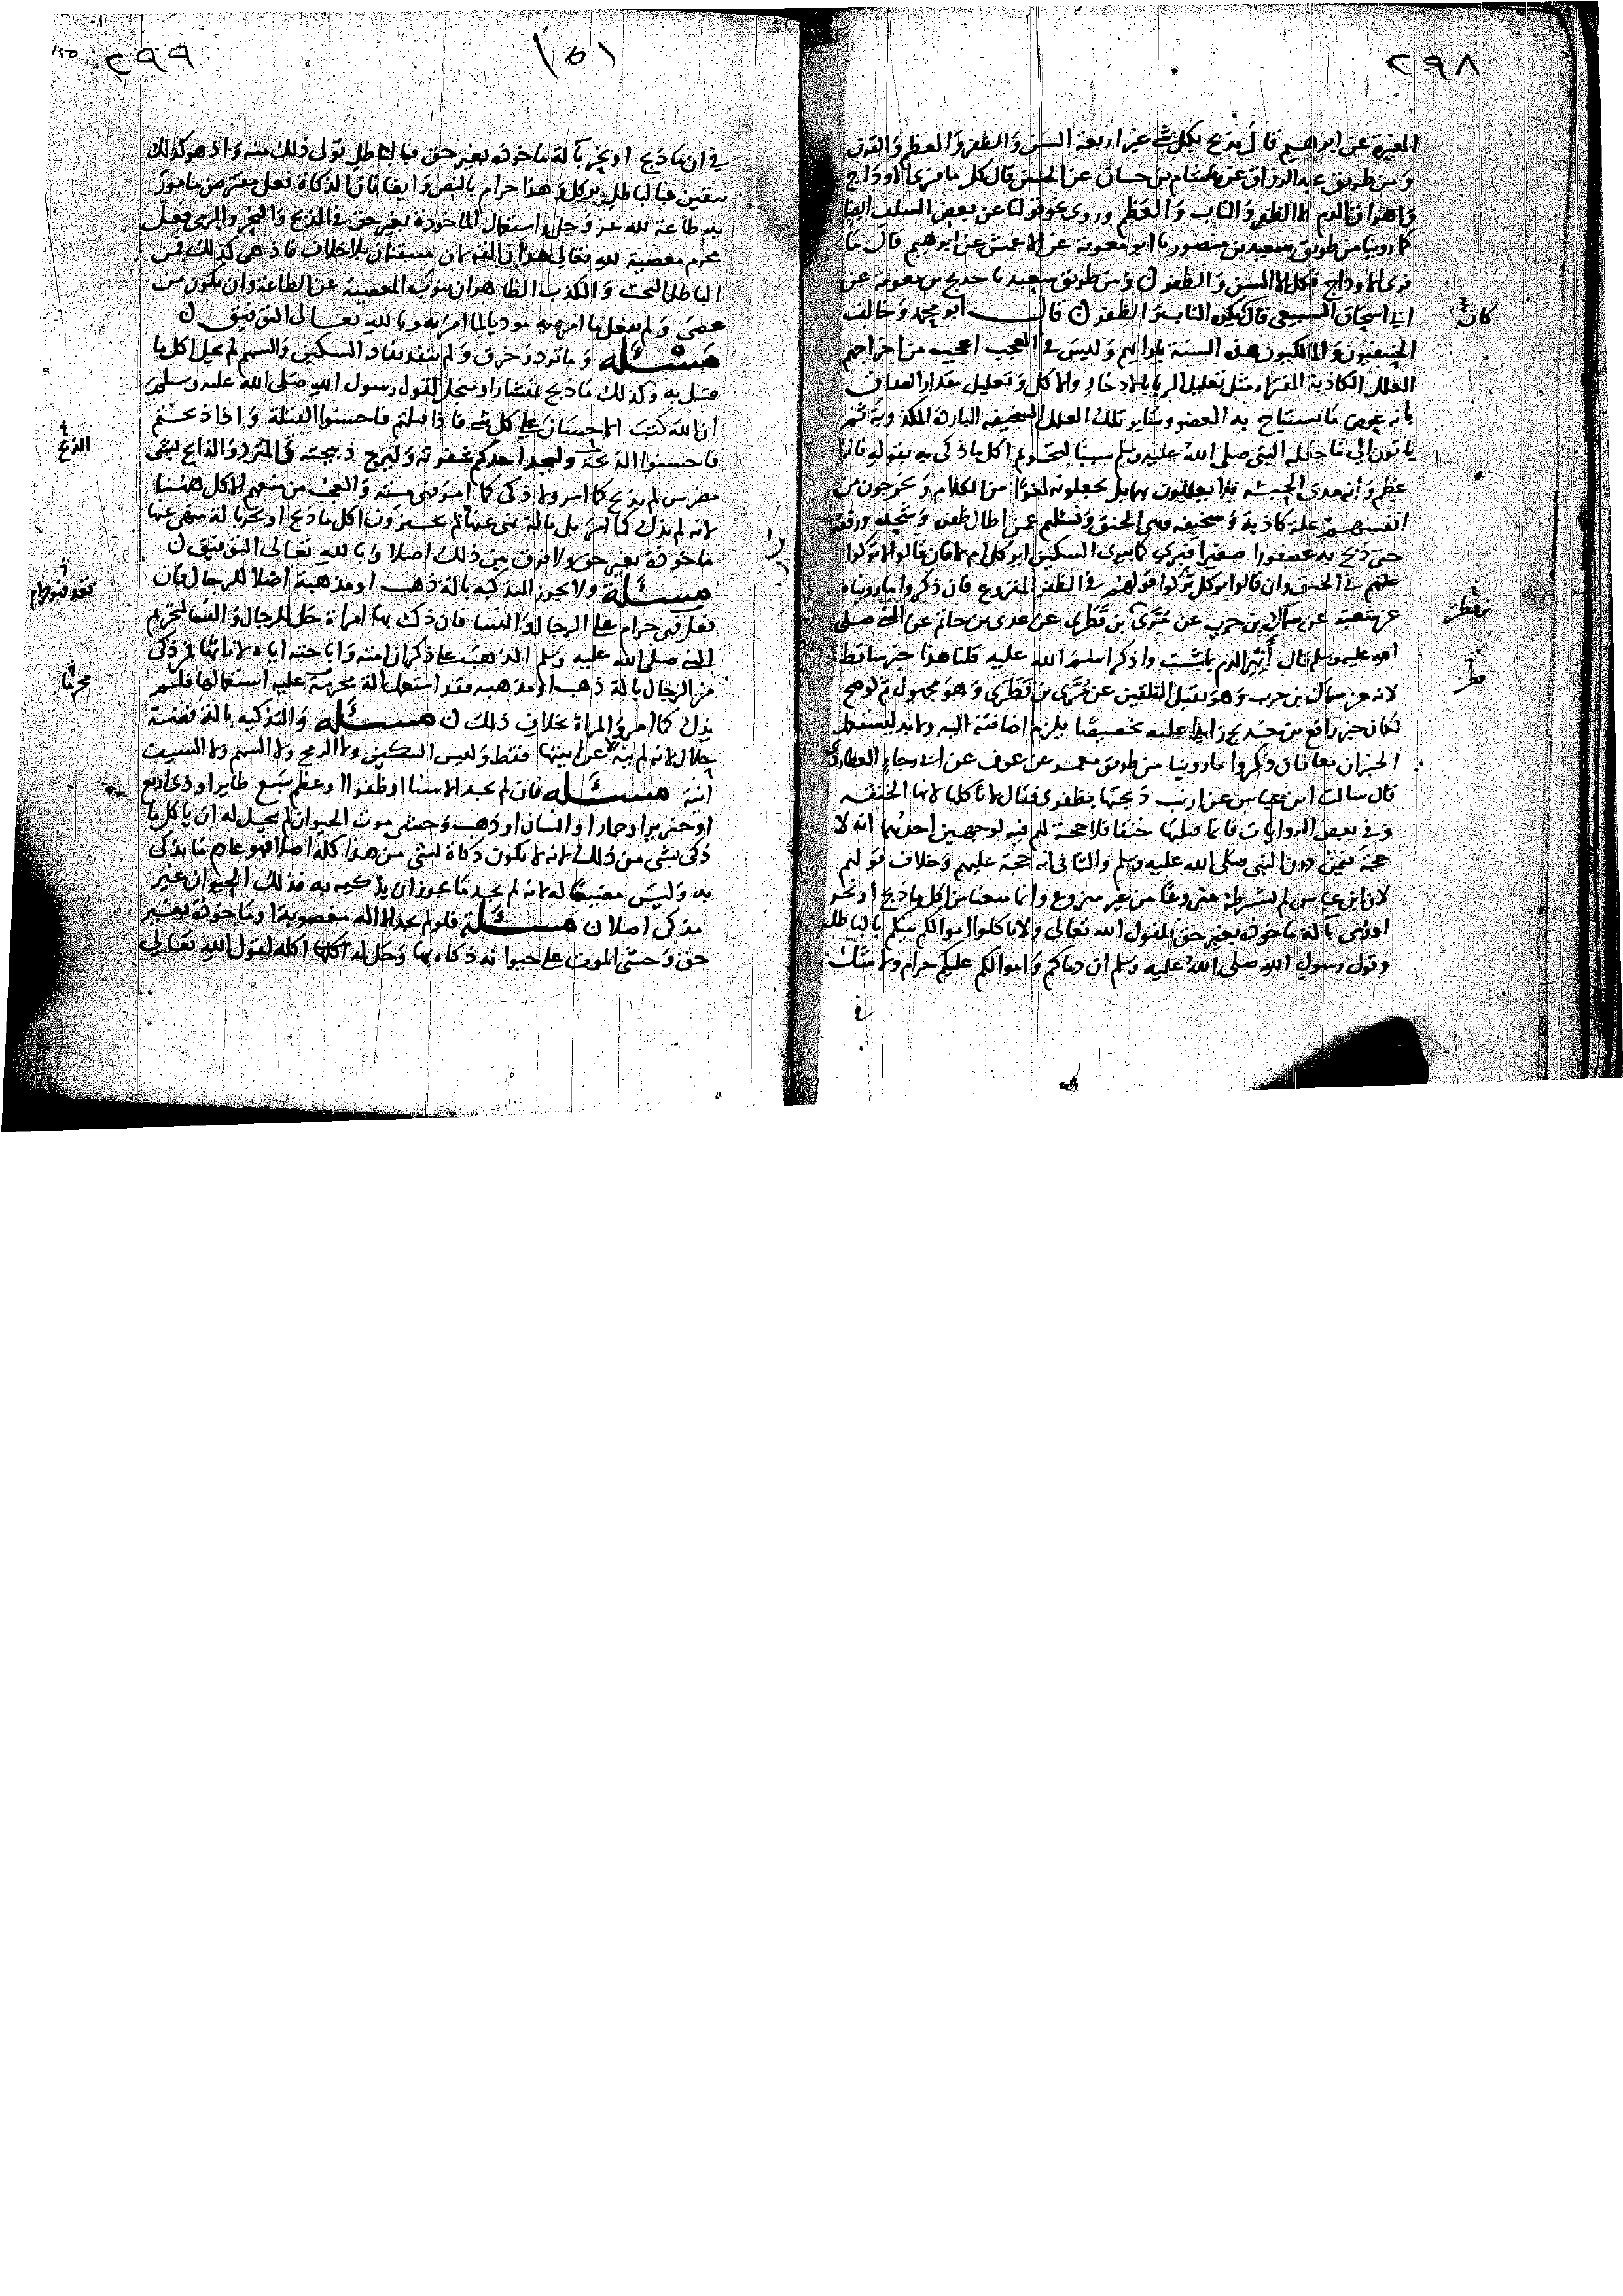 ٢٩٨
المغيرة عن ابراهيم قال يذبح بكل شي غير اربعة السن والظفر والعظم والقرن
ومن طريق عبد الرزاق عن هشام بن حسان عن الحسن قال كل ما فرى الاوداج
واهراق الدم الا الظفر والناب والعظم وروى نحو قولنا عن بعض السلف ايضا
كما روينا من طريق سعيد بن منصور نا ابو معوية عن الاعمش عن ابرهيم قال ما
فرى الاوداج فكل الا السن والظفر ن ومن طريق سعيد نا حديج بن معوية عن
ابي اسحاق السبيعي قال يكره الناب والظفر ن قال ابو محمد وخالف
كان
الحنيفيون والمالكيون هذه السنة بارايهم وليس في العجب اعجب من اخراجهم
العلل الكاذبة المفتراه مثل تعليل الربا بالادخار والاكل وتعليل مقدار الصداق
بانه عوض ما يستباح به العضو وساير تلك العلل السخيفه الباردة المكذوبة ثم
ياتون الى ما جعله النبي صلى الله عليه وسلم سببا لتحريم اكل ما ذكي به بقوله فانه
عظم وانه مدى الحبشه فلا يعللون بهما بل يجعلونه لغوا من الكلام ويخرجون من
انفسهم علة كاذبة وسخيفه وهي الخنق ونسئلهم عن اطال ظفره وشحذه ورققه
حتى ذبح به عصفورا صغيرا فبرى كما تبرى السكين ايوكل ام لا فان قالوا لا تركوا
علتهم في الخنق وان قالوا يوكل تركوا قولهم في الظفر المنزوع فان ذكروا ما رويناه
عن شعبة عن سماك بن حرب عن مري بن قطري عن عدي بن حاتم عن النبي صلى
الله عليه وسلم قال أنهر الدم بما شئت واذكر اسم الله عليه قلنا هذا خبر ساقط
لانه عن سماك بن حرب وهو يقبل التلقين عن مري بن قطري وهو مجهول ثم لو صح
لكان خبر رافع بن خديج زايدا عليه تخصيصا يلزم اضافته اليه ولا بد ليستعمل
الخبران معا فان ذكروا ما روينا من طريق معمر عن عوف عن ابي رجاء العطاردي
قال سالت ابن عباس عن ارنب ذبحتها بظفري فقال لا تاكلها لانها الخنقه
وفي بعض الروايات فانما قتلتها خنقا فلا حجة لهم فيه لوجهين احدهما انه لا
حجة فيمن دون النبي صلى الله عليه وسلم والثاني انه حجة عليهم وخلاف قولهم
لان ابن عباس لم يشترط منزوعا من غير منزوع وانما منعنا من اكل ما ذبح او نحر
او رمي بآلة ماخوذه بغير حق فلقول الله تعالى ولا تاكلوا اموالكم بينكم بالباطل
وقول رسول الله صلى الله عليه وسلم ان دماكم واموالكم عليكم حرام ولا شك
٢٩٩
١٥١
في ان ما ذبح او نحر بآلة ماخوذه بغير حق فبالباطل تولى ذلك منه واذ هو كذلك
بيقين فبالباطل يوكل وهذا حرام بالنص وايضا فان الذكاة فعل مفترض مامور
به طاعة لله عز وجل واستعمال الماخوذه بغير حق في الذبح والنحر والرمي فعل
محرم معصية لله تعالى هذان القولان متيقنان بلا خلاف فاذ هي كذلك فمن
الباطل البحت والكذب الظاهر ان تنوب المعصية عن الطاعة وان يكون من
عصى ولم يفعل ما امر به موديا لما امر به وبالله تعالى التوفيق ن
مسئله وما ثرد وخزق ولم ينفذ نفاذ السكين والسهم لم يحل اكل ما
قتل به وكذلك ما ذبح بمنشار او منجل لقول رسول الله صلى الله عليه وسلم
ان الله كتب الاحسان على كل شي فاذا قتلتم فاحسنوا القتلة واذا ذبحتم
فاحسنوا الذبحة وليحد احدكم شفرته وليرح ذبيحته
الذبح
لانه لم يذك كما امر بل بآلة نهى عنها ثم يجيزون اكل ما ذبح او نحر بآلة منهي عنها
ماخوذة بغير حق ولا فرق بين ذلك اصلا وبالله تعالى التوفيق ن
مسئلة ولا يجوز التذكيه بالة ذهب او مذهبة اصلا للرجال فان
فعل فهي حرام على الرجال والنسا فان ذكت بها امراة حل للرجال والنسا لتحريم
النبي صلى الله عليه وسلم الذهب على ذكران امته واباحته اياه لاناثها فمن ذكى
من الرجال بالة ذهب او مذهبه فقد استعمل آلة محرمة عليه استعمالها فلم
محرما
يذك كما امر والمراة بخلاف ذلك ن مسئله والتذكيه بالة فضة
حلال لانه لم ينه الا عن انيتها فقط وليس السكين ولا الرمح ولا السهم ولا السيف
انية مسئله فان لم يجد الا سنا او ظفرا او عظم سبع طاير او ذي اربع
او خنزير او حمار او انسان او ذهب وخشي موت الحيوان لم يحل له ان ياكل ما
ذكى بشي من ذلك لانه لا يكون ذكاة بشي من هذا كله اصلا فهو عادم ما يذكي
به وليس مضيعا له لانه لم يجد ما يجوز ان يذكيه به فذلك الحيوان غير
مذكى اصلا ن مسئلة فلو لم يجد الا الة مغصوبة او ماخوذة بغير
حق وخشي الموت على حيوانه ذكاه بها وحل له اكله لقول الله تعالى